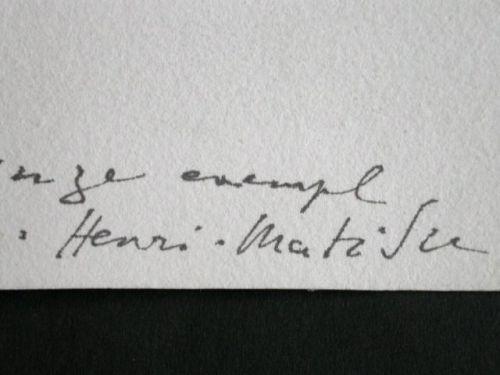 nze exempl
. Henri. Matisse